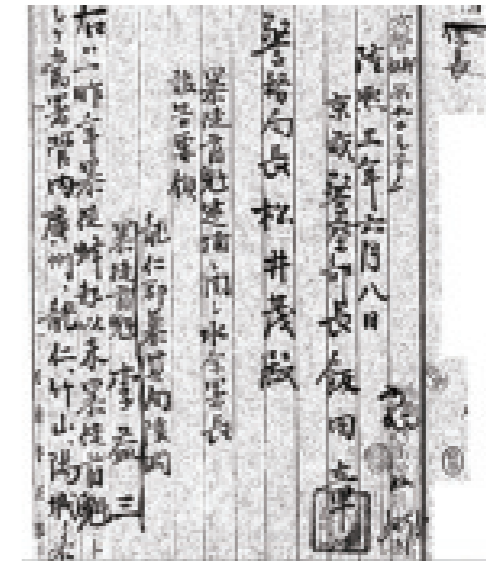 隆熙二年六月八日
京城警察部長 飯田章
警務局長松井茂殿
暴徒首魁逮捕ニ関シ水原署長
報告要領
龍仁郡慕賢面陵洞
暴徒首魁 李益三
右ハ昨年暴徒蜂起以来暴徒首魁ト
シテ当署管内廣州、龍仁、竹山、陽城、水